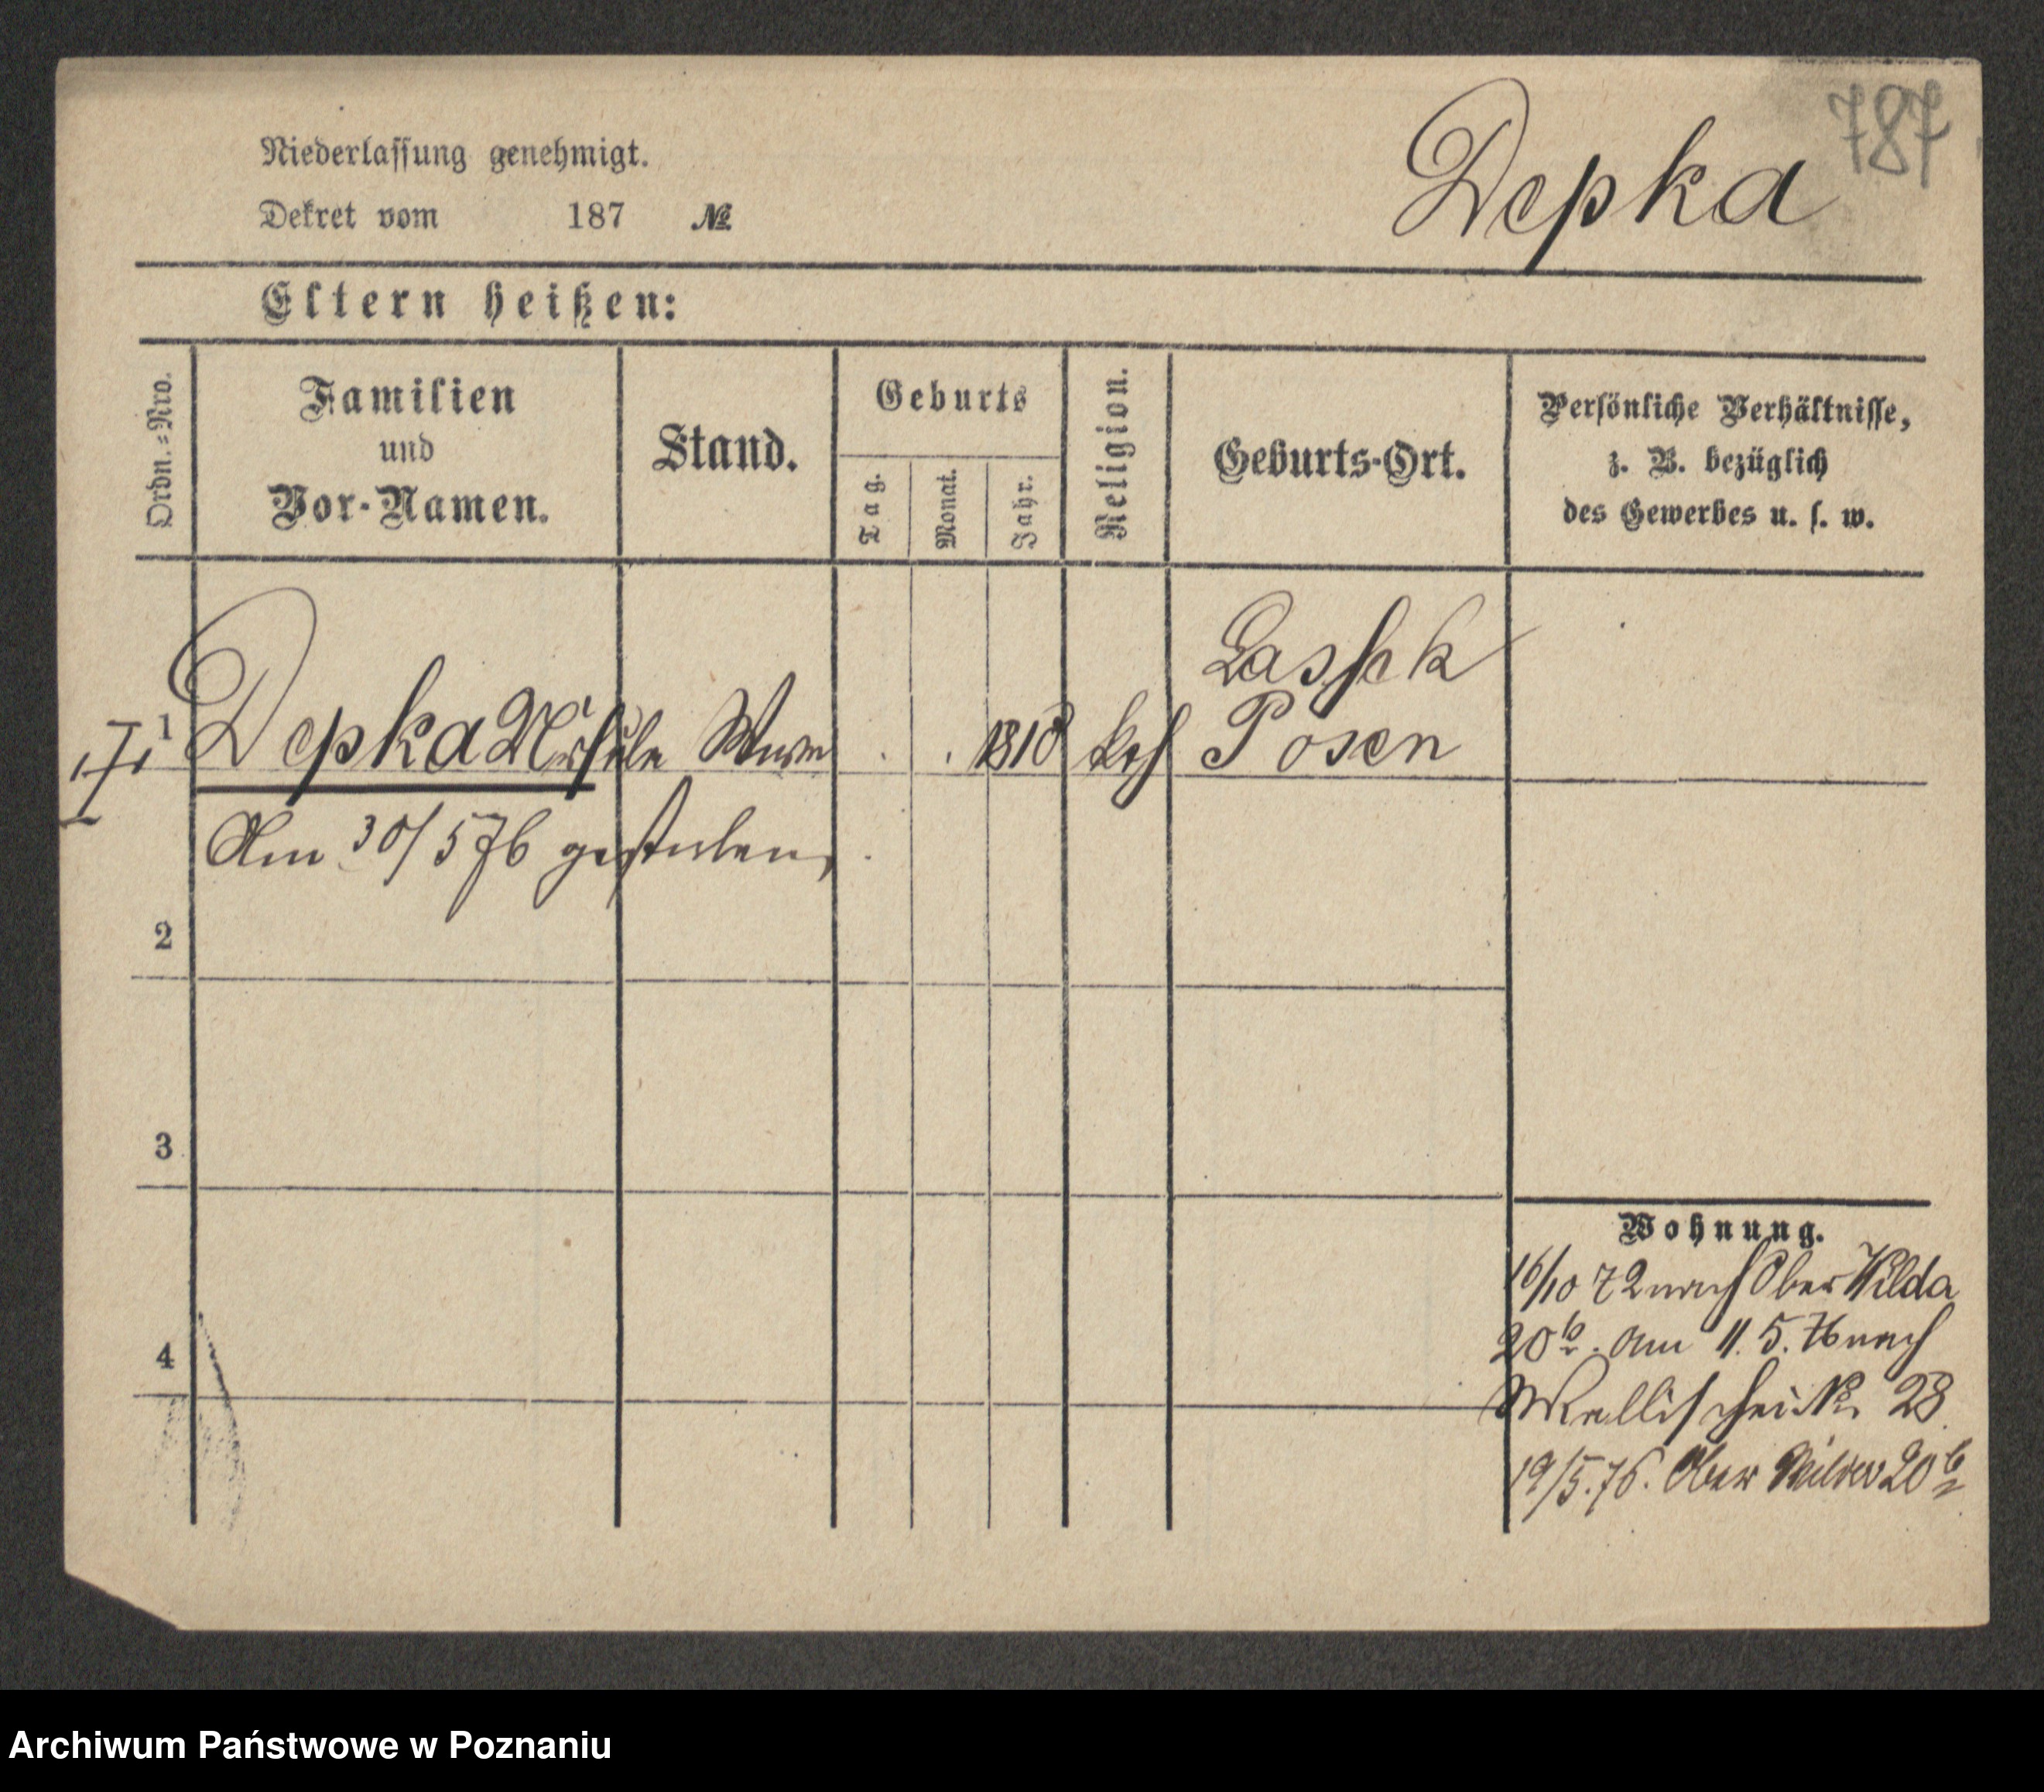 787
Niederlassung genehmigt.
Depka
Dekret vom 187 №
Eltern heißen:
Ordn.=Nro.
Familien
und
Vor-Namen.
Stand.
Geburts
Tag.
Monat.
Jahr.
Religion.
Geburts-Ort.
Persönliche Verhältnisse,
z. B. bezüglich
des Gewerbes u. s. w.
Lassek
1 Depka Ursula Wwe 1818 kth Posen
Am 30/5 76 gestorben
2
3
4
Wohnung.
16/10 72 nach Ober Wilda
20b. am 11.5.76 nach
Wallischei № 28
19/5.76. Ober Wilda 20b
Archiwum Państwowe w Poznaniu